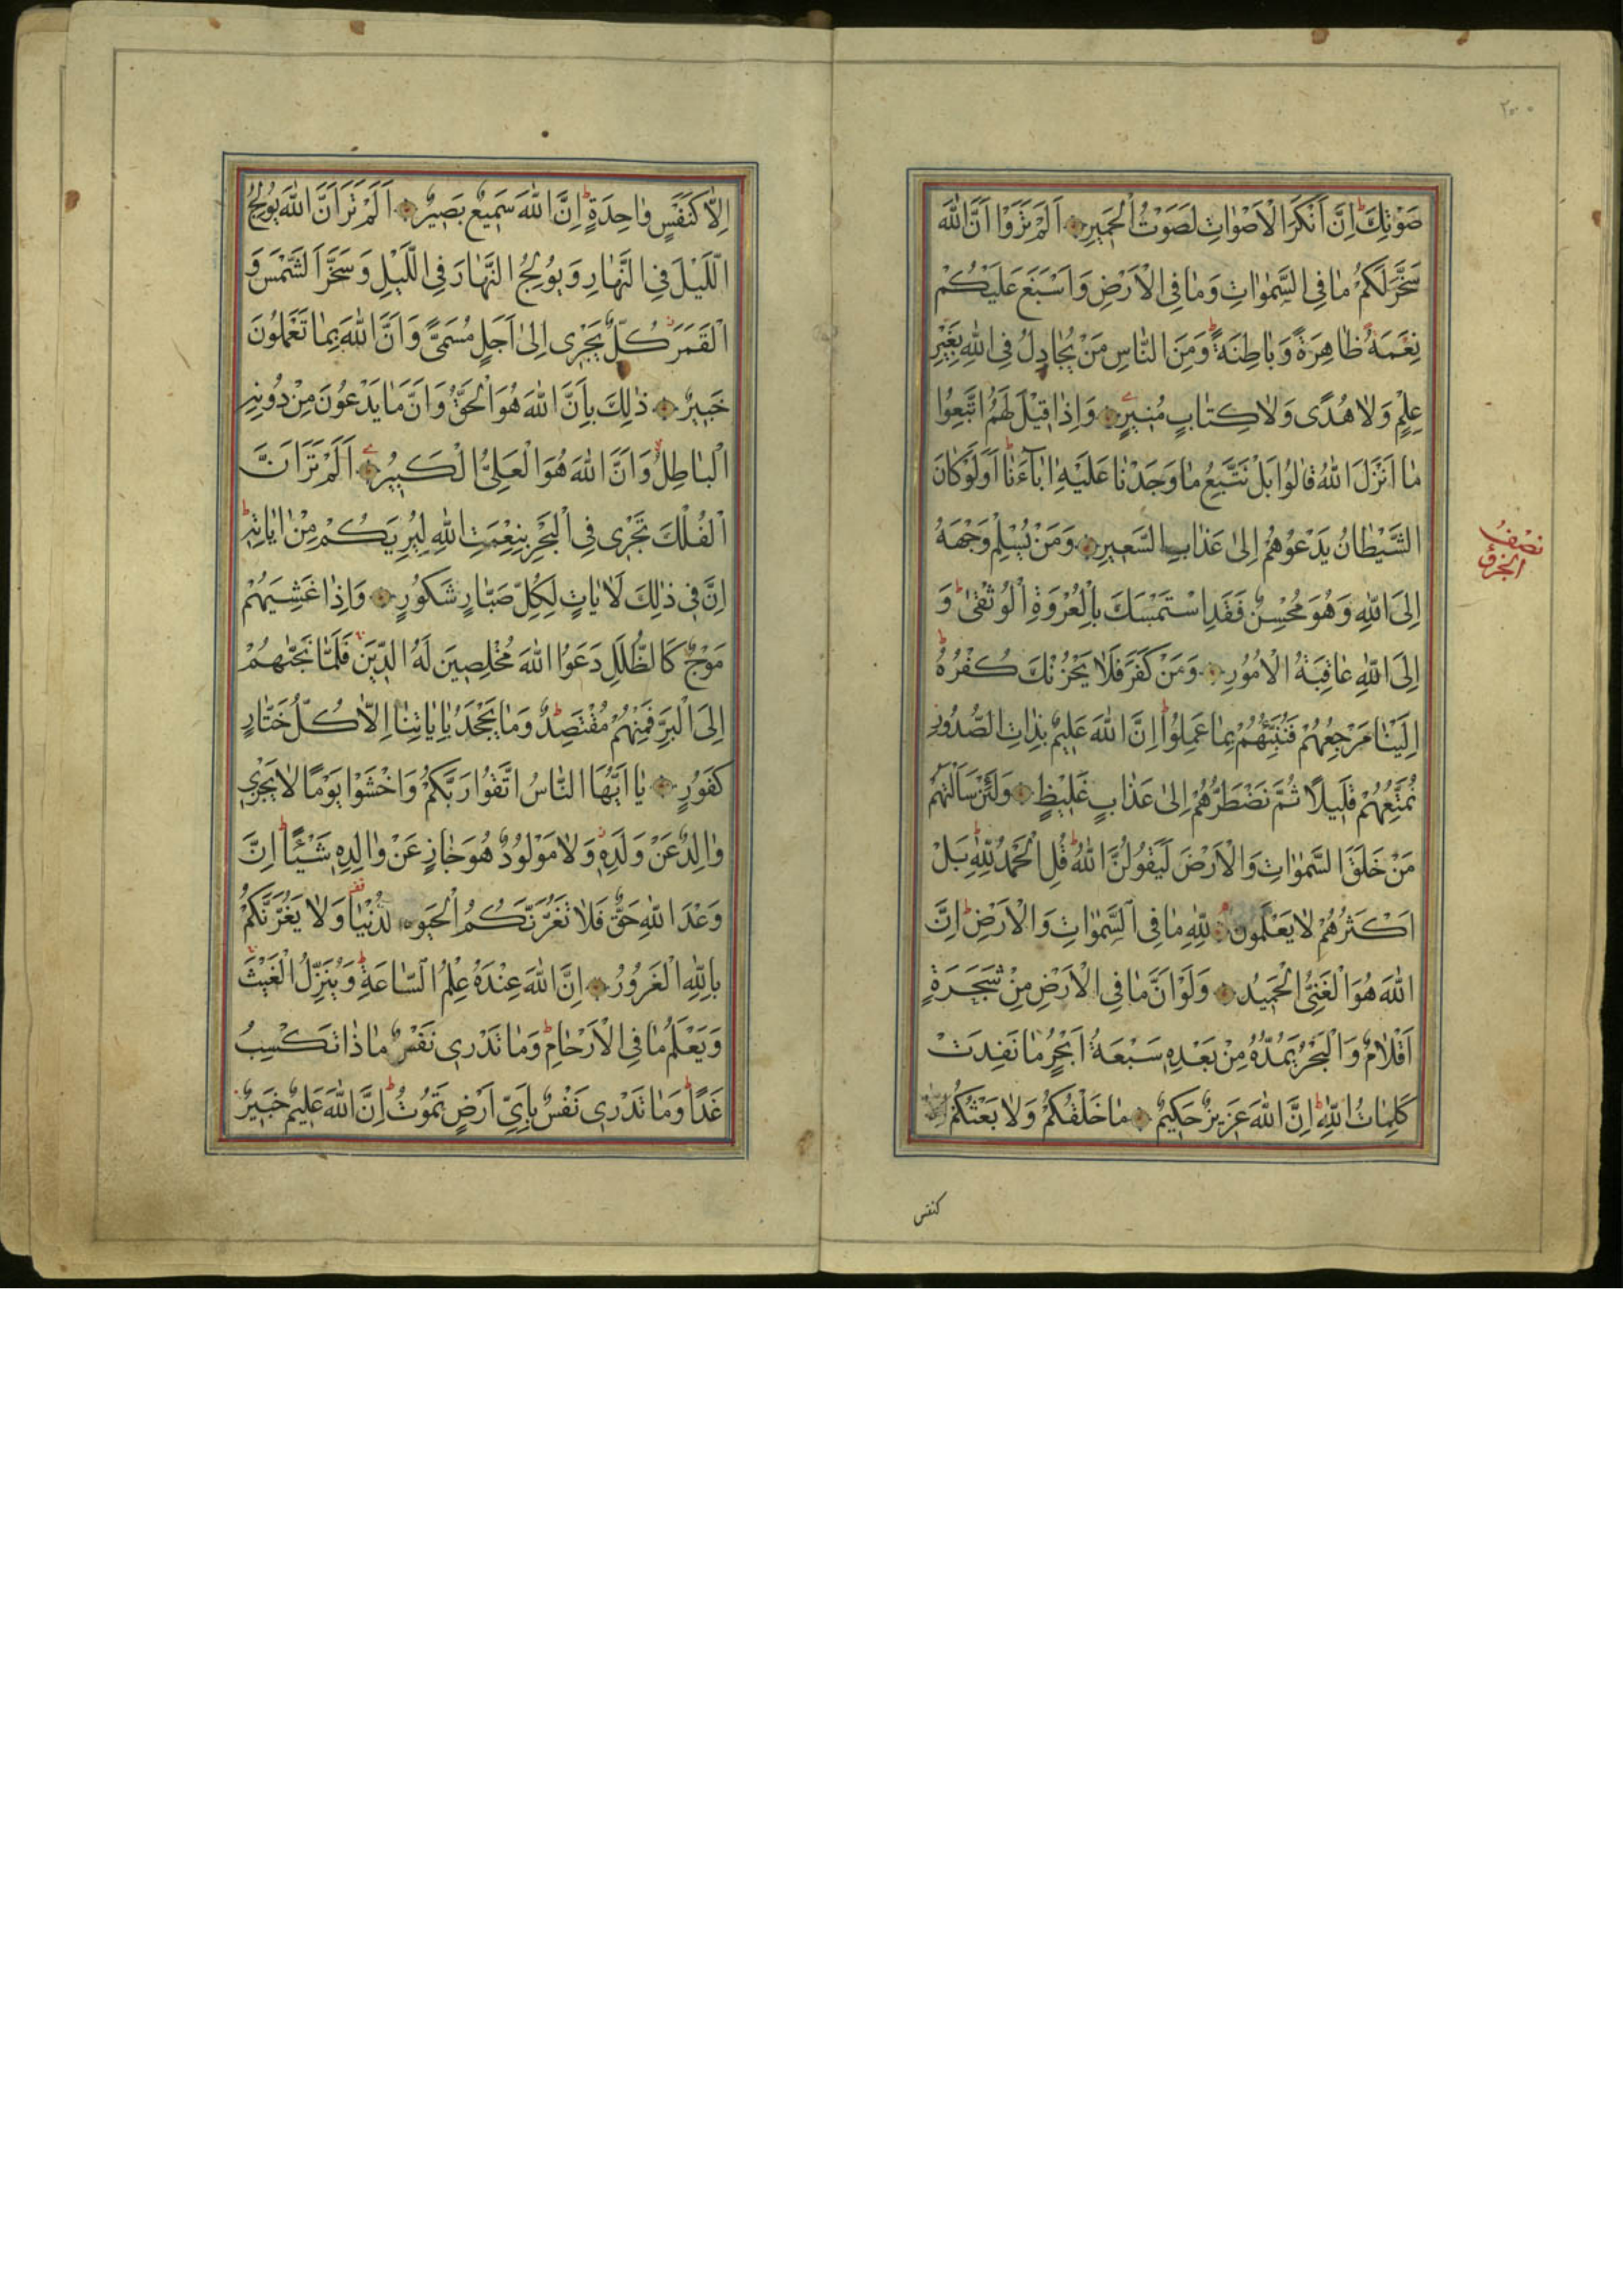 ٢٠٠
صَوْتِكَ اِنَّ اَنْكَرَ الْاَصْوٰاتِ لَصَوْتُ الْحَمٖيرِ اَلَمْ تَرَوْا اَنَّ اللّٰهَ
سَخَّرَ لَكُمْ مٰا فِى السَّمٰوٰاتِ وَمٰا فِى الْاَرْضِ وَاَسْبَغَ عَلَيْكُمْ
نِعْمَةً ظٰاهِرَةً وَبٰاطِنَةً وَمِنَ النّٰاسِ مَنْ يُجٰادِلُ فِى اللّٰهِ بِغَيْرِ
عِلْمٍ وَلٰا هُدًى وَلٰا كِتٰابٍ مُنٖيرٍ وَاِذٰا قٖيلَ لَهُمُ اتَّبِعُوا
مٰا اَنْزَلَ اللّٰهُ قٰالُوا بَلْ نَتَّبِعُ مٰا وَجَدْنٰا عَلَيْهِ اٰبٰآءَنٰا اَوَلَوْ كٰانَ
الشَّيْطٰانُ يَدْعُوهُمْ اِلىٰ عَذٰابِ السَّعٖيرِ وَمَنْ يُسْلِمْ وَجْهَهُ
نصف الجزؤ
اِلَى اللّٰهِ وَهُوَ مُحْسِنٌ فَقَدِ اسْتَمْسَكَ بِالْعُرْوَةِ الْوُثْقىٰ وَ
اِلَى اللّٰهِ عٰاقِبَةُ الْاُمُورِ وَمَنْ كَفَرَ فَلٰا يَحْزُنْكَ كُفْرُهُ
اِلَيْنٰا مَرْجِعُهُمْ فَنُنَبِّئُهُمْ بِمٰا عَمِلُوا اِنَّ اللّٰهَ عَلٖيمٌ بِذٰاتِ الصُّدُورِ
نُمَتِّعُهُمْ قَلٖيلًا ثُمَّ نَضْطَرُّهُمْ اِلىٰ عَذٰابٍ غَلٖيظٍ وَلَئِنْ سَاَلْتَهُمْ
مَنْ خَلَقَ السَّمٰوٰاتِ وَالْاَرْضَ لَيَقُولُنَّ اللّٰهُ قُلِ الْحَمْدُ لِلّٰهِ بَلْ
اَكْثَرُهُمْ لٰا يَعْلَمُونَ لِلّٰهِ مٰا فِى السَّمٰوٰاتِ وَالْاَرْضِ اِنَّ
اللّٰهَ هُوَ الْغَنِىُّ الْحَمٖيدُ وَلَوْ اَنَّ مٰا فِى الْاَرْضِ مِنْ شَجَرَةٍ
اَقْلٰامٌ وَالْبَحْرُ يَمُدُّهُ مِنْ بَعْدِهٖ سَبْعَةُ اَبْحُرٍ مٰا نَفِدَتْ
كَلِمٰاتُ اللّٰهِ اِنَّ اللّٰهَ عَزٖيزٌ حَكٖيمٌ مٰا خَلْقُكُمْ وَلٰا بَعْثُكُمْ
كنفس
اِلّٰا كَنَفْسٍ وٰاحِدَةٍ اِنَّ اللّٰهَ سَمٖيعٌ بَصٖيرٌ اَلَمْ تَرَ اَنَّ اللّٰهَ يُولِجُ
اللَّيْلَ فِى النَّهٰارِ وَيُولِجُ النَّهٰارَ فِى اللَّيْلِ وَسَخَّرَ الشَّمْسَ وَ
الْقَمَرَ كُلٌّ يَجْرٖى اِلىٰ اَجَلٍ مُسَمًّى وَاَنَّ اللّٰهَ بِمٰا تَعْمَلُونَ
خَبٖيرٌ ذٰلِكَ بِاَنَّ اللّٰهَ هُوَ الْحَقُّ وَاَنَّ مٰا يَدْعُونَ مِنْ دُونِهِ
الْبٰاطِلُ وَاَنَّ اللّٰهَ هُوَ الْعَلِىُّ الْكَبٖيرُ اَلَمْ تَرَ اَنَّ
الْفُلْكَ تَجْرٖى فِى الْبَحْرِ بِنِعْمَتِ اللّٰهِ لِيُرِيَكُمْ مِنْ اٰيٰاتِهٖ
اِنَّ فٖى ذٰلِكَ لَاٰيٰاتٍ لِكُلِّ صَبّٰارٍ شَكُورٍ وَاِذٰا غَشِيَهُمْ
مَوْجٌ كَالظُّلَلِ دَعَوُا اللّٰهَ مُخْلِصٖينَ لَهُ الدّٖينَ فَلَمّٰا نَجّٰيهُمْ
اِلَى الْبَرِّ فَمِنْهُمْ مُقْتَصِدٌ وَمٰا يَجْحَدُ بِاٰيٰاتِنٰا اِلّٰا كُلُّ خَتّٰارٍ
كَفُورٍ يٰا اَيُّهَا النّٰاسُ اتَّقُوا رَبَّكُمْ وَاخْشَوْا يَوْمًا لٰا يَجْزٖى
وٰالِدٌ عَنْ وَلَدِهٖ وَلٰا مَوْلُودٌ هُوَ جٰازٍ عَنْ وٰالِدِهٖ شَيْئًا اِنَّ
وَعْدَ اللّٰهِ حَقٌّ فَلٰا تَغُرَّنَّكُمُ الْحَيٰوةُ الدُّنْيٰا وَلٰا يَغُرَّنَّكُمْ
بِاللّٰهِ الْغَرُورُ اِنَّ اللّٰهَ عِنْدَهُ عِلْمُ السّٰاعَةِ وَيُنَزِّلُ الْغَيْثَ
وَيَعْلَمُ مٰا فِى الْاَرْحٰامِ وَمٰا تَدْرٖى نَفْسٌ مٰاذٰا تَكْسِبُ
غَدًا وَمٰا تَدْرٖى نَفْسٌ بِاَىِّ اَرْضٍ تَمُوتُ اِنَّ اللّٰهَ عَلٖيمٌ خَبٖيرٌ